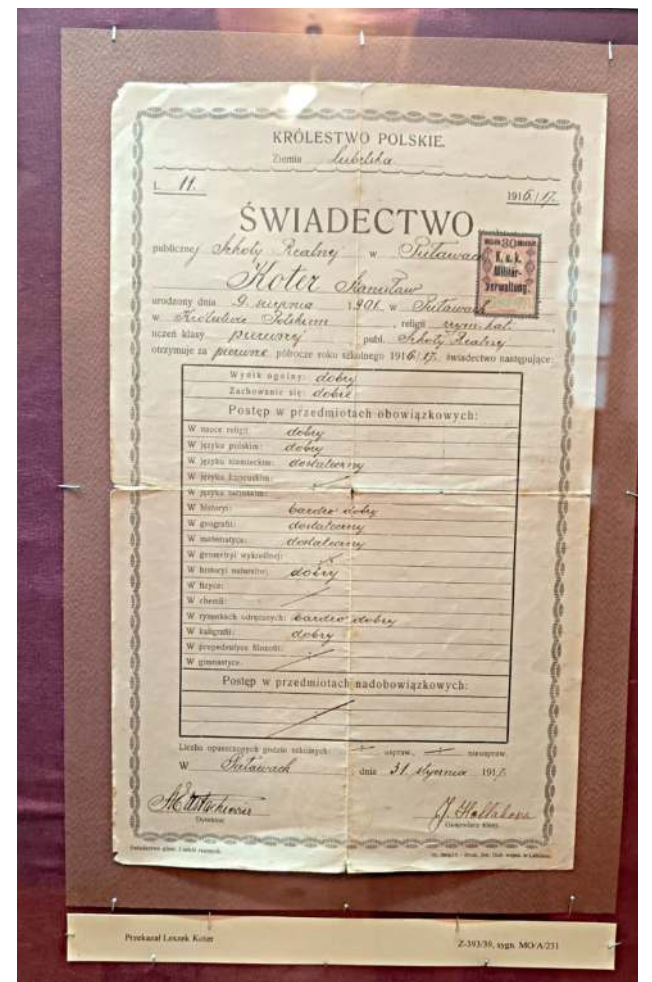 KRÓLESTWO POLSKIE.
Ziemia lubelska
L. 11. 1916/17.
ŚWIADECTWO
publicznej Szkoły Realnej w Puławach
Koter Stanisław
30
K. u. k.
Militär-
verwaltung.
urodzony dnia 9. sierpnia 1901. w Puławach
w Królestwie Polskiem, religii rzym. kat.,
uczeń klasy pierwszej publ. Szkoły Realnej
otrzymuje za pierwsze półrocze roku szkolnego 1916/17. świadectwo następujące:
Wynik ogólny: dobry
Zachowanie się: dobre
Postęp w przedmiotach obowiązkowych:
W nauce religii: dobry
W języku polskim: dobry
W języku niemieckim: dostateczny
W języku francuskim:
W języku łacińskim:
W historyi: bardzo dobry
W geografii: dostateczny
W matematyce: dostateczny
W geometryi wykreślnej:
W historyi naturalnej: dobry
W fizyce:
W chemii:
W rysunkach odręcznych: bardzo dobry
W kaligrafii: dobry
W propedeutyce filozofii:
W gimnastyce:
Postęp w przedmiotach nadobowiązkowych:
Liczba opuszczonych godzin szkolnych: uspraw., nieuspraw.
W Puławach, dnia 31. stycznia 1917.
Dyrektor. Gospodarz klasy.
Przekazał Leszek Koter Z-393/39, sygn. MO/A/231